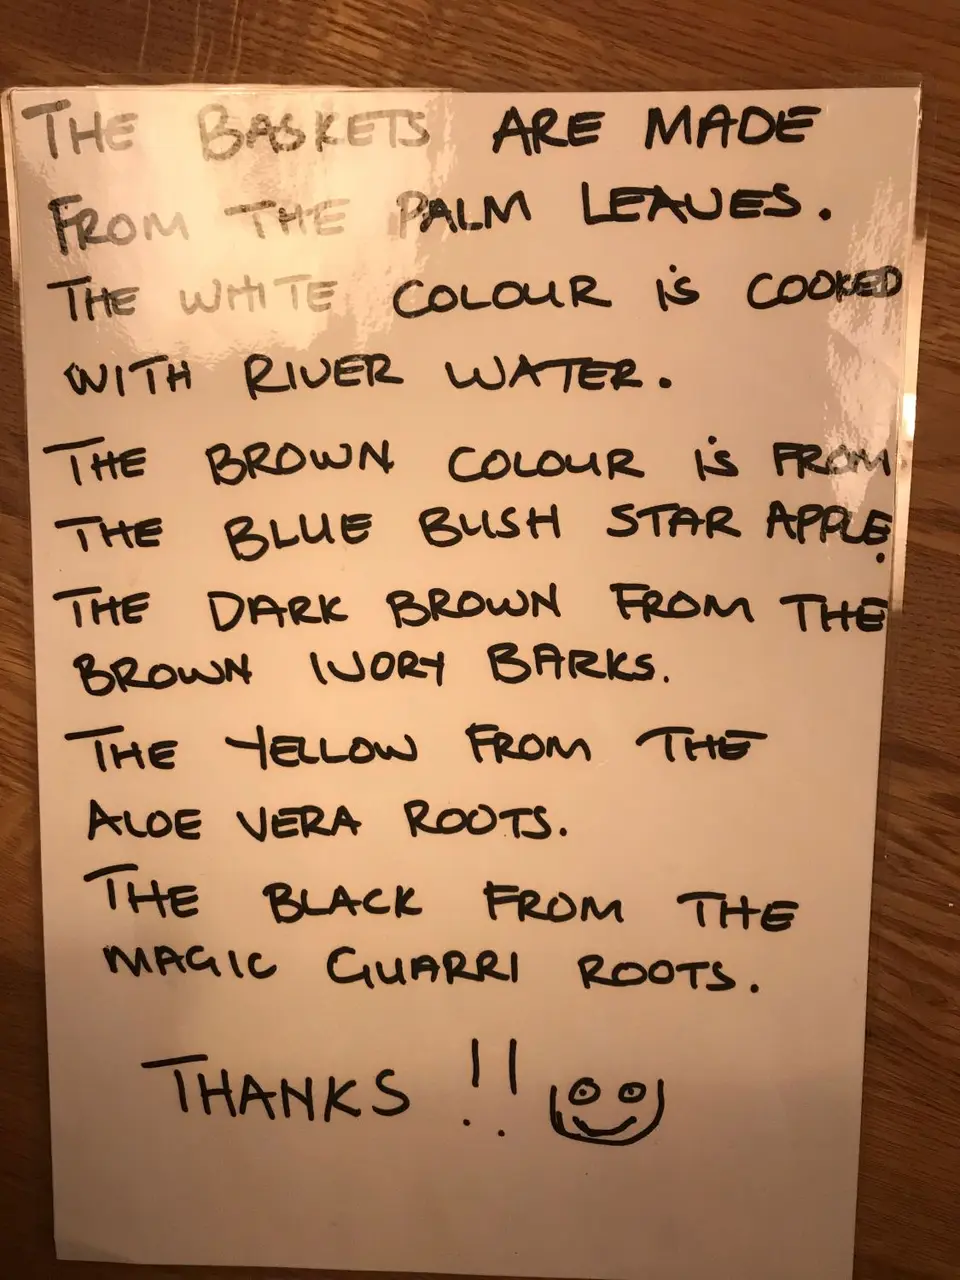 THE BASKETS ARE MADE
FROM THE PALM LEAVES.
THE WHITE COLOUR iS COOKED
WITH RIVER WATER.
THE BROWN COLOUR iS FROM
THE BLUE BUSH STAR APPLE.
THE DARK BROWN FROM THE
BROWN IVORY BARKS.
THE YELLOW FROM THE
ALOE VERA ROOTS.
THE BLACK FROM THE
MAGIC GUARRI ROOTS.
THANKS !!